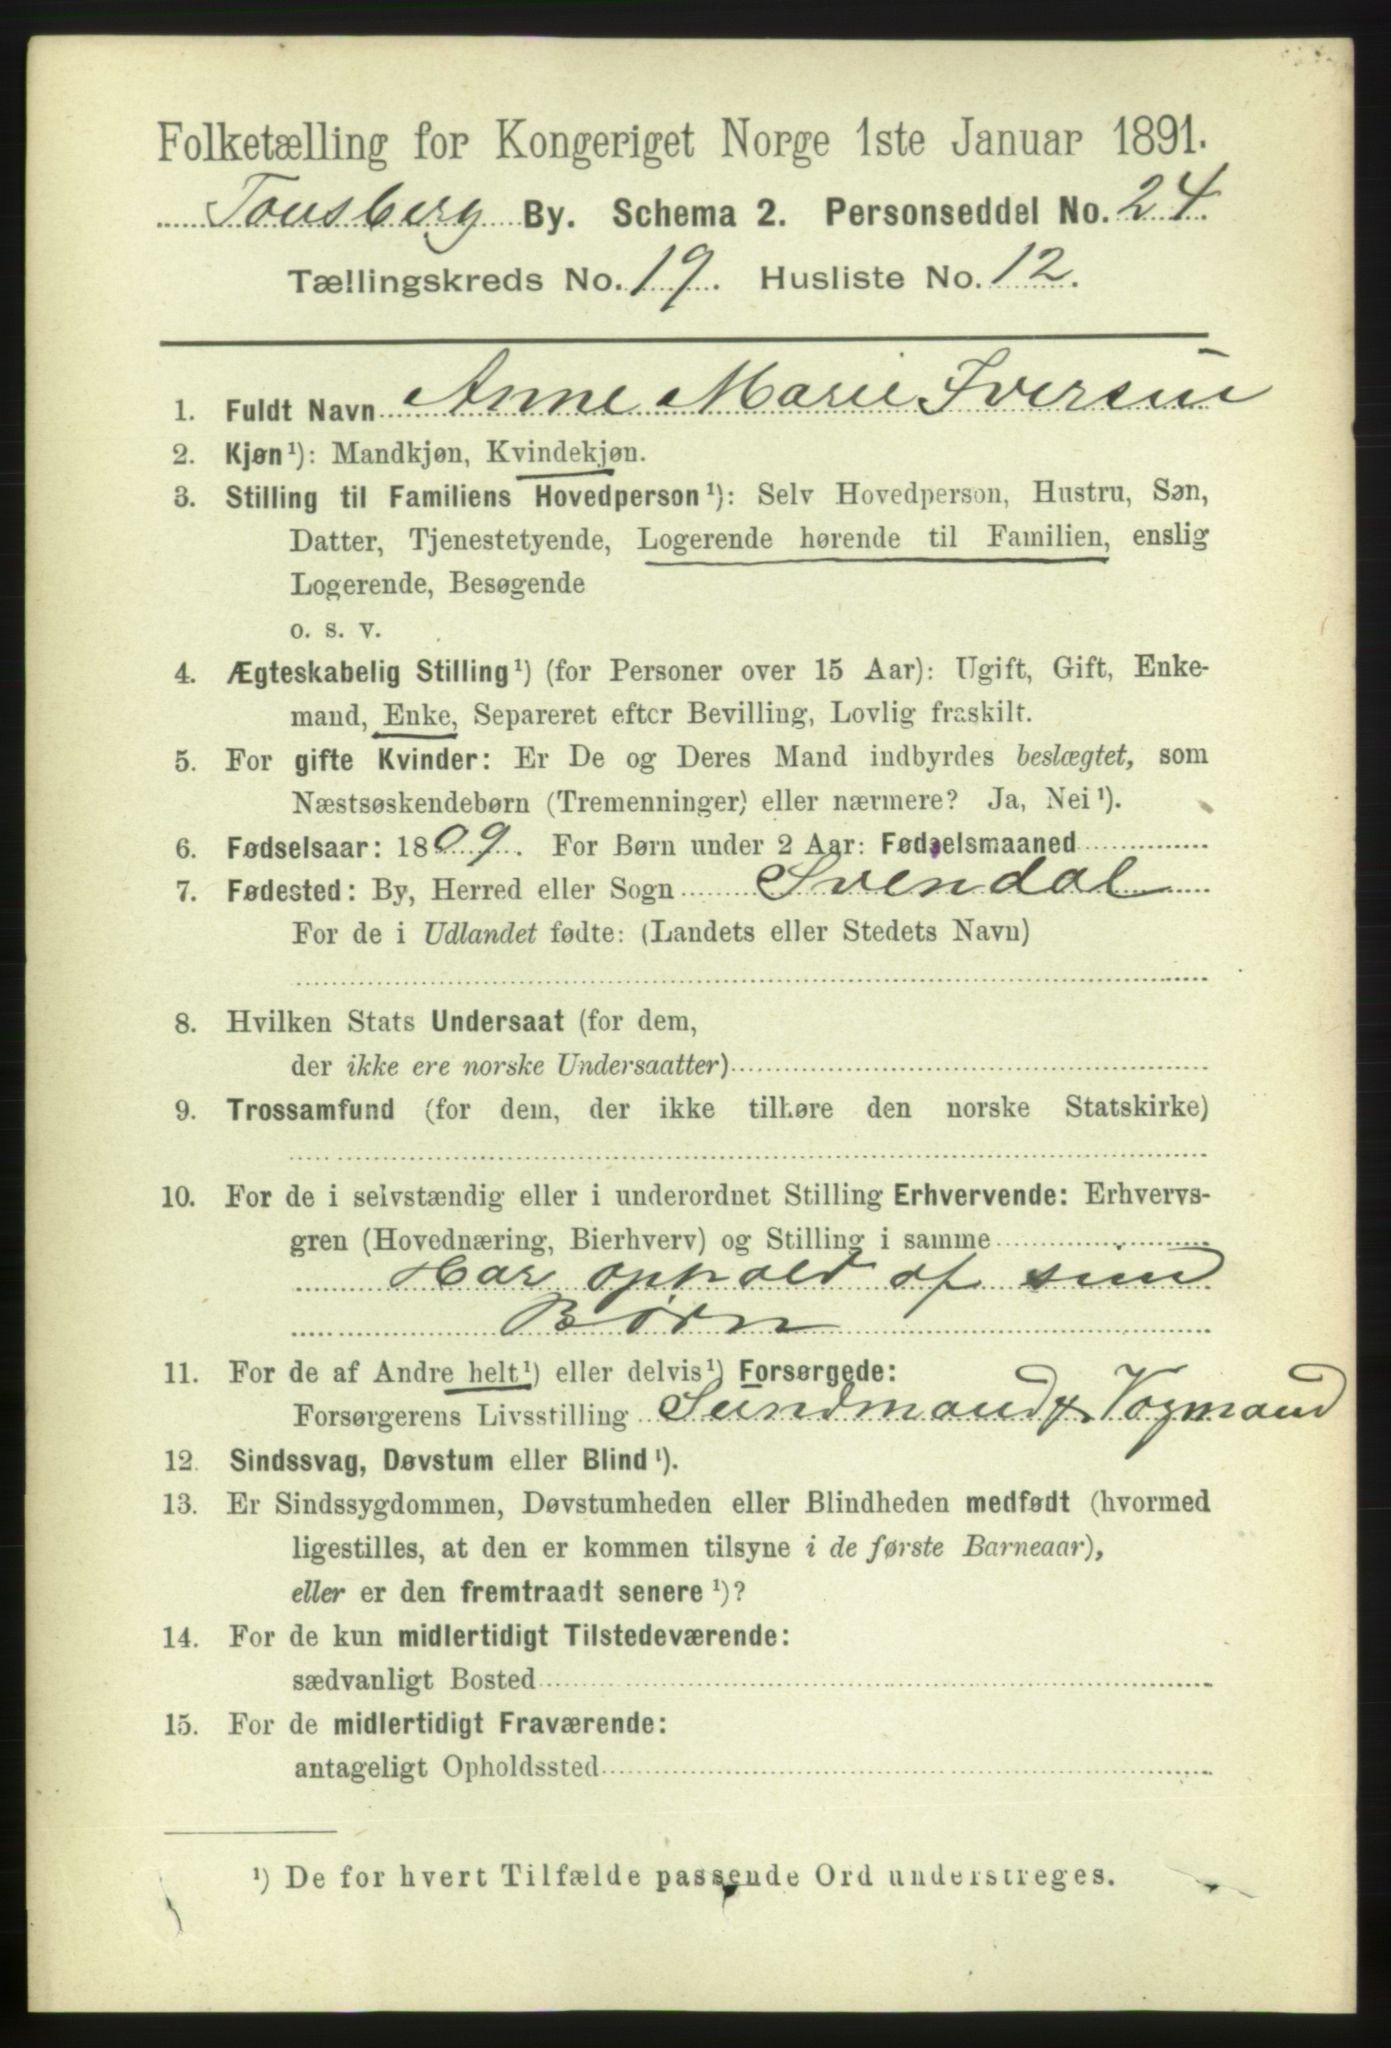 Folketælling for Kongeriget Norge 1ste Januar 1891.
Tønsberg By. Schema 2. Personseddel No. 24.
Tællingskreds No. 19. Husliste No. 12.
1. Fuldt Navn Anne Marie Iversen
2. Kjøn¹): Mandkjøn, Kvindekjøn.
3. Stilling til Familiens Hovedperson¹): Selv Hovedperson, Hustru, Søn,
Datter, Tjenestetyende, Logerende hørende til Familien, enslig
Logerende, Besøgende
o. s. v.
4. Ægteskabelig Stilling¹) (for Personer over 15 Aar): Ugift, Gift, Enke-
mand, Enke, Separeret efter Bevilling, Lovlig fraskilt.
5. For gifte Kvinder: Er De og Deres Mand indbyrdes beslægtet, som
Næstsøskendebørn (Tremenninger) eller nærmere? Ja, Nei¹).
6. Fødselsaar: 1809. For Børn under 2 Aar: Fødselsmaaned
7. Fødested: By, Herred eller Sogn Svendal
For de i Udlandet fødte: (Landets eller Stedets Navn)
8. Hvilken Stats Undersaat (for dem,
der ikke ere norske Undersaatter)
9. Trossamfund (for dem, der ikke tilhøre den norske Statskirke)
10. For de i selvstændig eller i underordnet Stilling Erhvervende: Erhvervs-
gren (Hovednæring, Bierhverv) og Stilling i samme
Har ophold af sine
Børn
11. For de af Andre helt¹) eller delvis¹) Forsørgede:
Forsørgerens Livsstilling &
12. Sindssvag, Døvstum eller Blind¹).
13. Er Sindssygdommen, Døvstumheden eller Blindheden medfødt (hvormed
ligestilles, at den er kommen tilsyne i de første Barneaar),
eller er den fremtraadt senere¹)?
14. For de kun midlertidigt Tilstedeværende:
sædvanligt Bosted
15. For de midlertidigt Fraværende:
antageligt Opholdssted
¹) De for hvert Tilfælde passende Ord understreges.